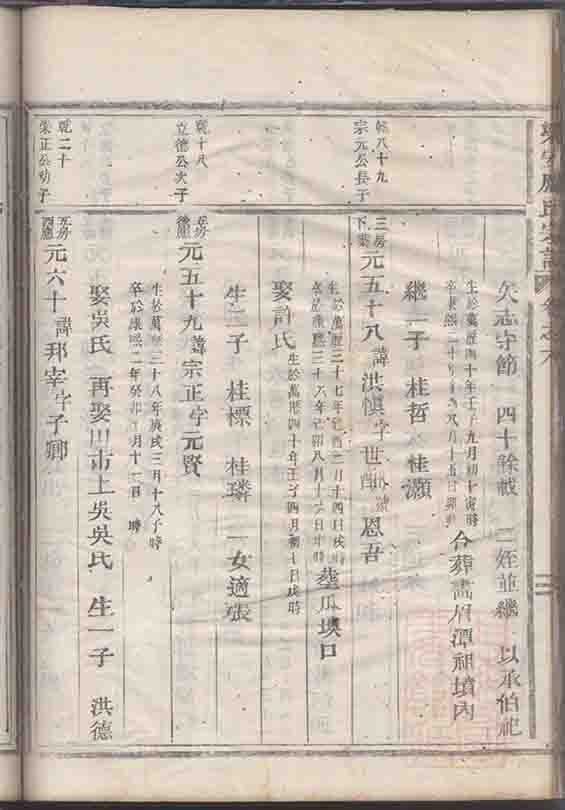 氏宗譜 卷之六
矢志守節 四十餘載 二姪並繼 以承伯祀
生於萬曆四十年壬子九月初十寅時
卒康熙二十年 八月十五日卯時 合葬 眉潭祖墳內
繼二子 桂哲 桂灝
乾八十九
宗元公長子
三房
下葉
元五十八 諱洪慎 字世 號恩吾
生於萬曆三十七年己酉二月十四日戌時
卒於康熙三十八年己卯八月十二日 時 葬瓜墺口
娶許氏 生於萬曆四十年壬子四月初十日戌時
生二子 桂標 桂璘 一女適張
乾十八
立德公次子
五房
後廳
元五十九 諱宗正 字元賢
生於萬曆三十八年庚戌三月十八子時
卒於康熙二年癸卯 月十二日 時
娶吳氏 再娶川市上吳吳氏 生一子 洪德
乾二十
榮正公幼子
五房
西廳
元六十 諱邦宰 字子卿